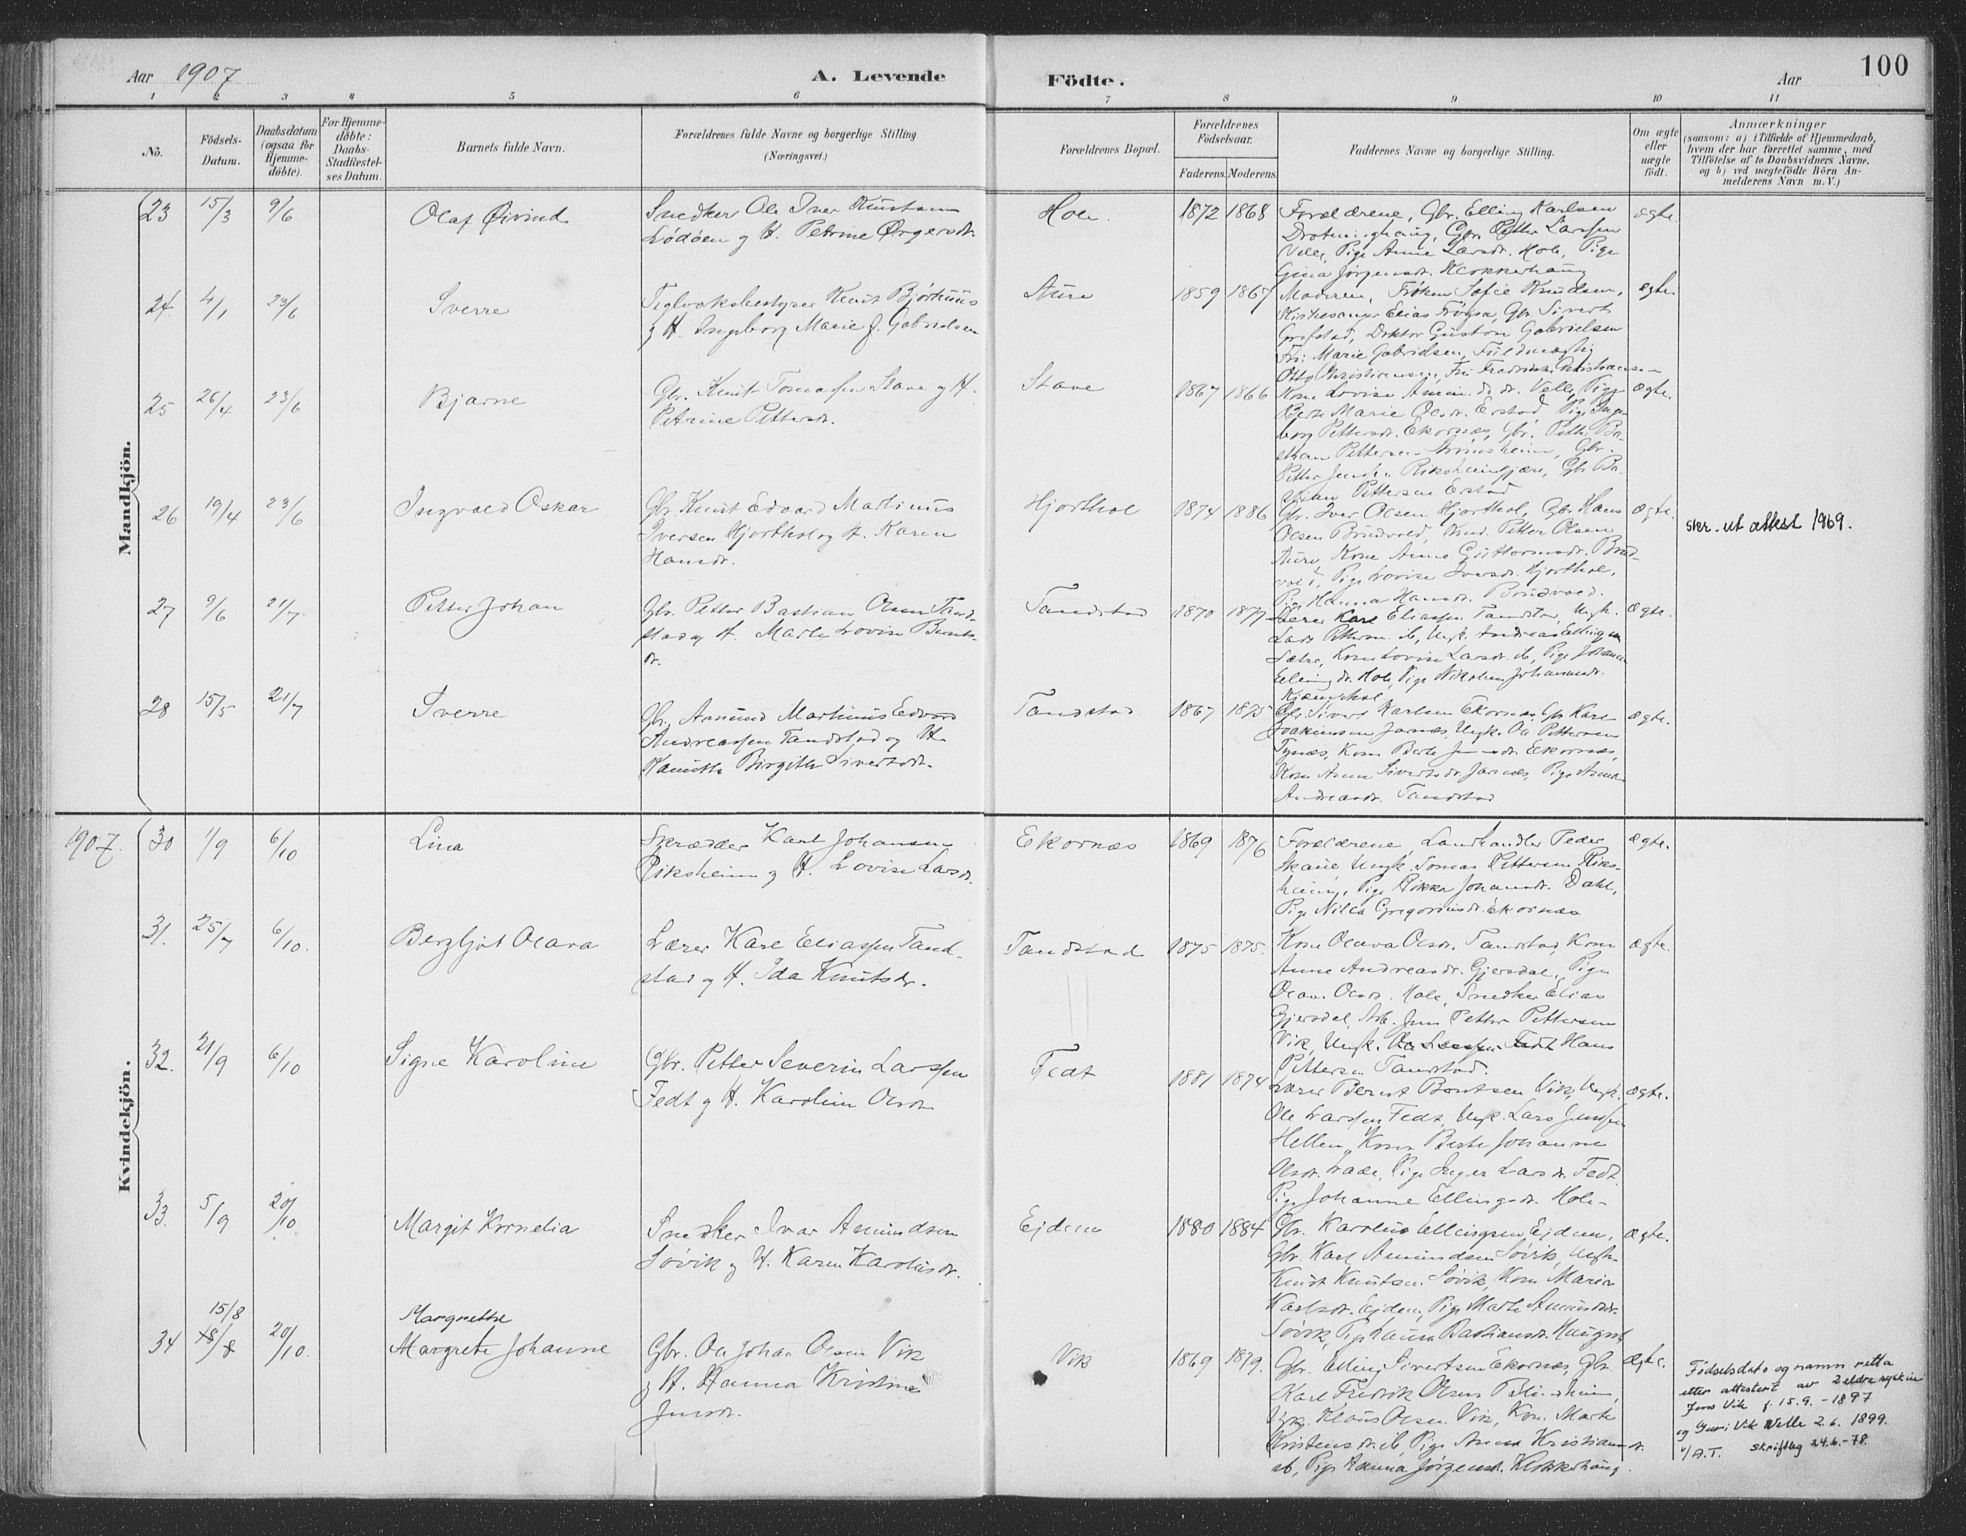 Aar 1907
A. Levende
Födte.
Aar
100
1 2 3 4 5 6 7 8 9 10 11
No.
Födsels-
Datum.
Daabsdatum
(ogsaa for
Hjemme-
döbte).
For Hjemme-
döbte:
Daabs-
Stadfæstel-
ses Datum.
Barnets fulde Navn.
Forældrenes fulde Navne og borgerlige Stilling.
(Næringsvei.)
Forældrenes Bopæl.
Forældrenes
Födselsaar.
Faderens. Moderens.
Faddernes Navne og borgerlige Stilling.
Om ægte
eller
uægte
født.
Anmærkninger
(saasom: a) i Tilfælde af Hjemmedaab,
hvem der har forrettet samme, med
Tilföielse af to Daabsvidners Navne.
og b) ved uægtefödte Börn An-
melderens Navn m. V.)
Mandkjön.
23 15/3 9/6 Olaf Øivind
Snedker Ole Iver Knutsen
Lödöen og H. Petrine
Hole. 1872 1868
Forældrene, Gbr. Elling Karlsen
Gbr. Petter Larssen
Velle, Pige Anne Larsdr. Hole, Pige
Gina Jørgensdr. Klokkerhaug
ægte.
24 4/1 23/6 Sverre
Teglverksbestyrer Knut Bjørhuus
og H. Ingeborg Marie f. Gabrielsen
Aure 1859 1867
Moderen, Frøken Sofie Knudsen,
Kirkesanger Elias Gbr. Sivert
Grepstad, Doktor Gustav Gabrielsen
Fru Marie Gabrielsen, Fuldmægtig
Otto Christiansen, Fru Fredrikke Christiansen
ægte
25 26/4 23/6 Bjarne
Gbr. Knut Tomassen Stave og H.
Petrine Pettersdr.
Stave 1867 1866
Kone Lovise Velle, Pige
Marie Olsdr. Erstad, Pige Inge-
borg Pettersdr. Ekornæs, Gbr. Petter Ba-
stian Pettersen Gbr.
Petter Gbr. Ba-
Pettersen Erstad
ægte.
26 19/4 23/6 Ingvald Oskar
Gbr. Knut Edvard Martinus
Iversen Hjorthol og H. Karen
Hansdr.
Hjorthol 1874 1886
Gbr. Iver Olsen Hjorthol, Gbr. Hans
Olsen Brudevold, Petter Olsen
Aure, Kone Anne Guttormsdr. Brude-
vold, Pige Lovise Iversdr. Hjorthol,
Pige Hanna Hansdr. Brudevold.
ægte.
skr. ut attest 1969.
27 9/6 21/7 Petter Johan
Gbr. Petter Bastian Olsen Tand-
stad og H. Marte Lovise Bernts-
dr.
Tandstad 1870 1877
Lærer Karl Eliassen Tandstad, Ungk.
Lars Petter ib, Ungk. Andreas Ellingsen
Sætre, Kone Lovise Larsdr. ib, Pige Johanne
Ellingsdr. Hole, Pige Nikoline Johannesdr.
ægte.
28 15/5 21/7 Sverre
Gbr. Amund Martinus Edvard
Andreassen Tandstad og H.
Birgithe Sivertsdr.
Tandstad 1867 1875
Gbr. Sivert Karlsen Ekornæs, Gbr. Karl
Joakimsen Jarnæs, Ungk. Ole Pettersen
Tynæs, Kone Berte Ekornæs,
Kone Anne Sivertsdr. Jarnæs, Pige Anna
Andreasdr. Tandstad
ægte.
Kvindekjön.
1907. 30 1/9 6/10 Lina
Skrædder Karl Johansen
Riksheim og H. Lovise Larsdr.
Ekornæs 1869 1876
Forældrene, Landhandler Peder
Skaue, Ungk. Tomas Pettersen Riks-
haug, Pige Rikka Johansdr. Dahl,
Pige Nilla Gregoriusdr. Ekornæs
ægte.
31. 25/7 6/10. Bergljot Olava
Lærer Karl Eliassen Tand-
stad og H. Ida Knutsdr.
Tandstad 1875 1875.
Kone Olava Olsdr. Tandstad, Kone
Anne Andreasdr. Gjersdal, Pige
Olsdr. Hole, Snedker Elias
Gjersdal, Arb. Jens Petter Pettersen
Vik, Ungk. Hans
Pettersen Tandstad.
ægte.
32. 21/9 6/10 Signe Karoline
Gbr. Petter Severin Larssen
Fedt og H. Karoline Olsdr
Fedt 1881 1874
Lærer Bernt Berntsen Vik, Ungk.
Ole Larssen Fedt, Ungk. Lars Jenssen
Hellen, Kone Berte Johanne
Olsdr. Pige Inger Larsdr. Fedt
Pige Johanne Ellingsdr. Hole
ægte.
33. 5/9 20/10. Margit Kornelia
Snedker Ivar Amundsen
Søvik og H. Karen Karolusdr.
Ejdem 1880 1884
Gbr. Karolus Ellingsen Ejdem,
Gbr. Karl Amundsen Søvik, Ungk.
Knut Knutsen Søvik, Kone Maria
Karlsdr. Ejdem, Pige Marte Amundsdr.
Søvik, Pige Bastiansdr.
ægte.
15/8 Margrethe
34 18/8 20/10. Margrete Johanne
Gbr. Ole Johan Olsen Vik
og H. Hanna Kristine
Jensdr.
Vik 1869 1879.
Gbr. Elling Sivertsen Ekornæs, Gbr.
Karl Fredrik Olsen Blindheim,
Ungk. Klaus Olsen Vik, Kone Marte
ib, Pige Anna
ib, Pige Hanna Jørgensdr. Klokkerhaug.
ægte.
Fødselsdato og namn retta
etter attestert av 2 eldre sysken
Jens Vik f. 15.9.-1897
og Guri Vik Velle 2.6.1899.
v/A.T. skriftleg 24.6.-78.